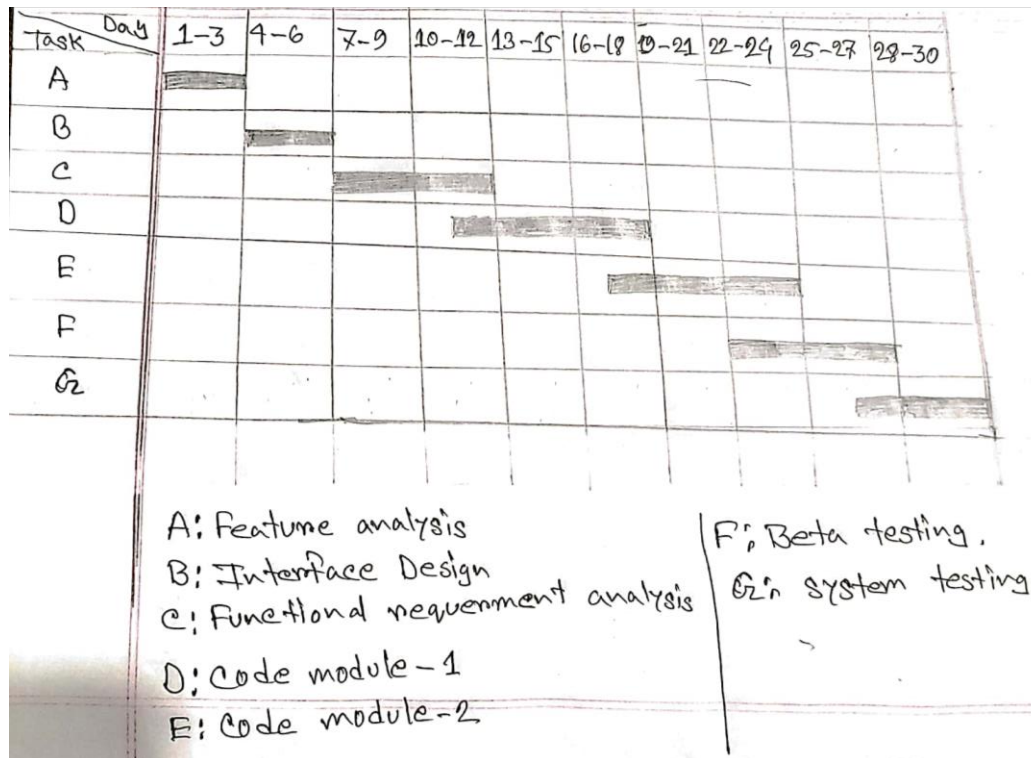 Day
Task
1-3 4-6 7-9 10-12 13-15 16-18 19-21 22-24 25-27 28-30
A
B
C
D
E
F
G
A: Feature analysis
B: Interface Design
C: Functional requenment analysis
D: Code module-1
E: Code module-2
F: Beta testing.
G: system testing